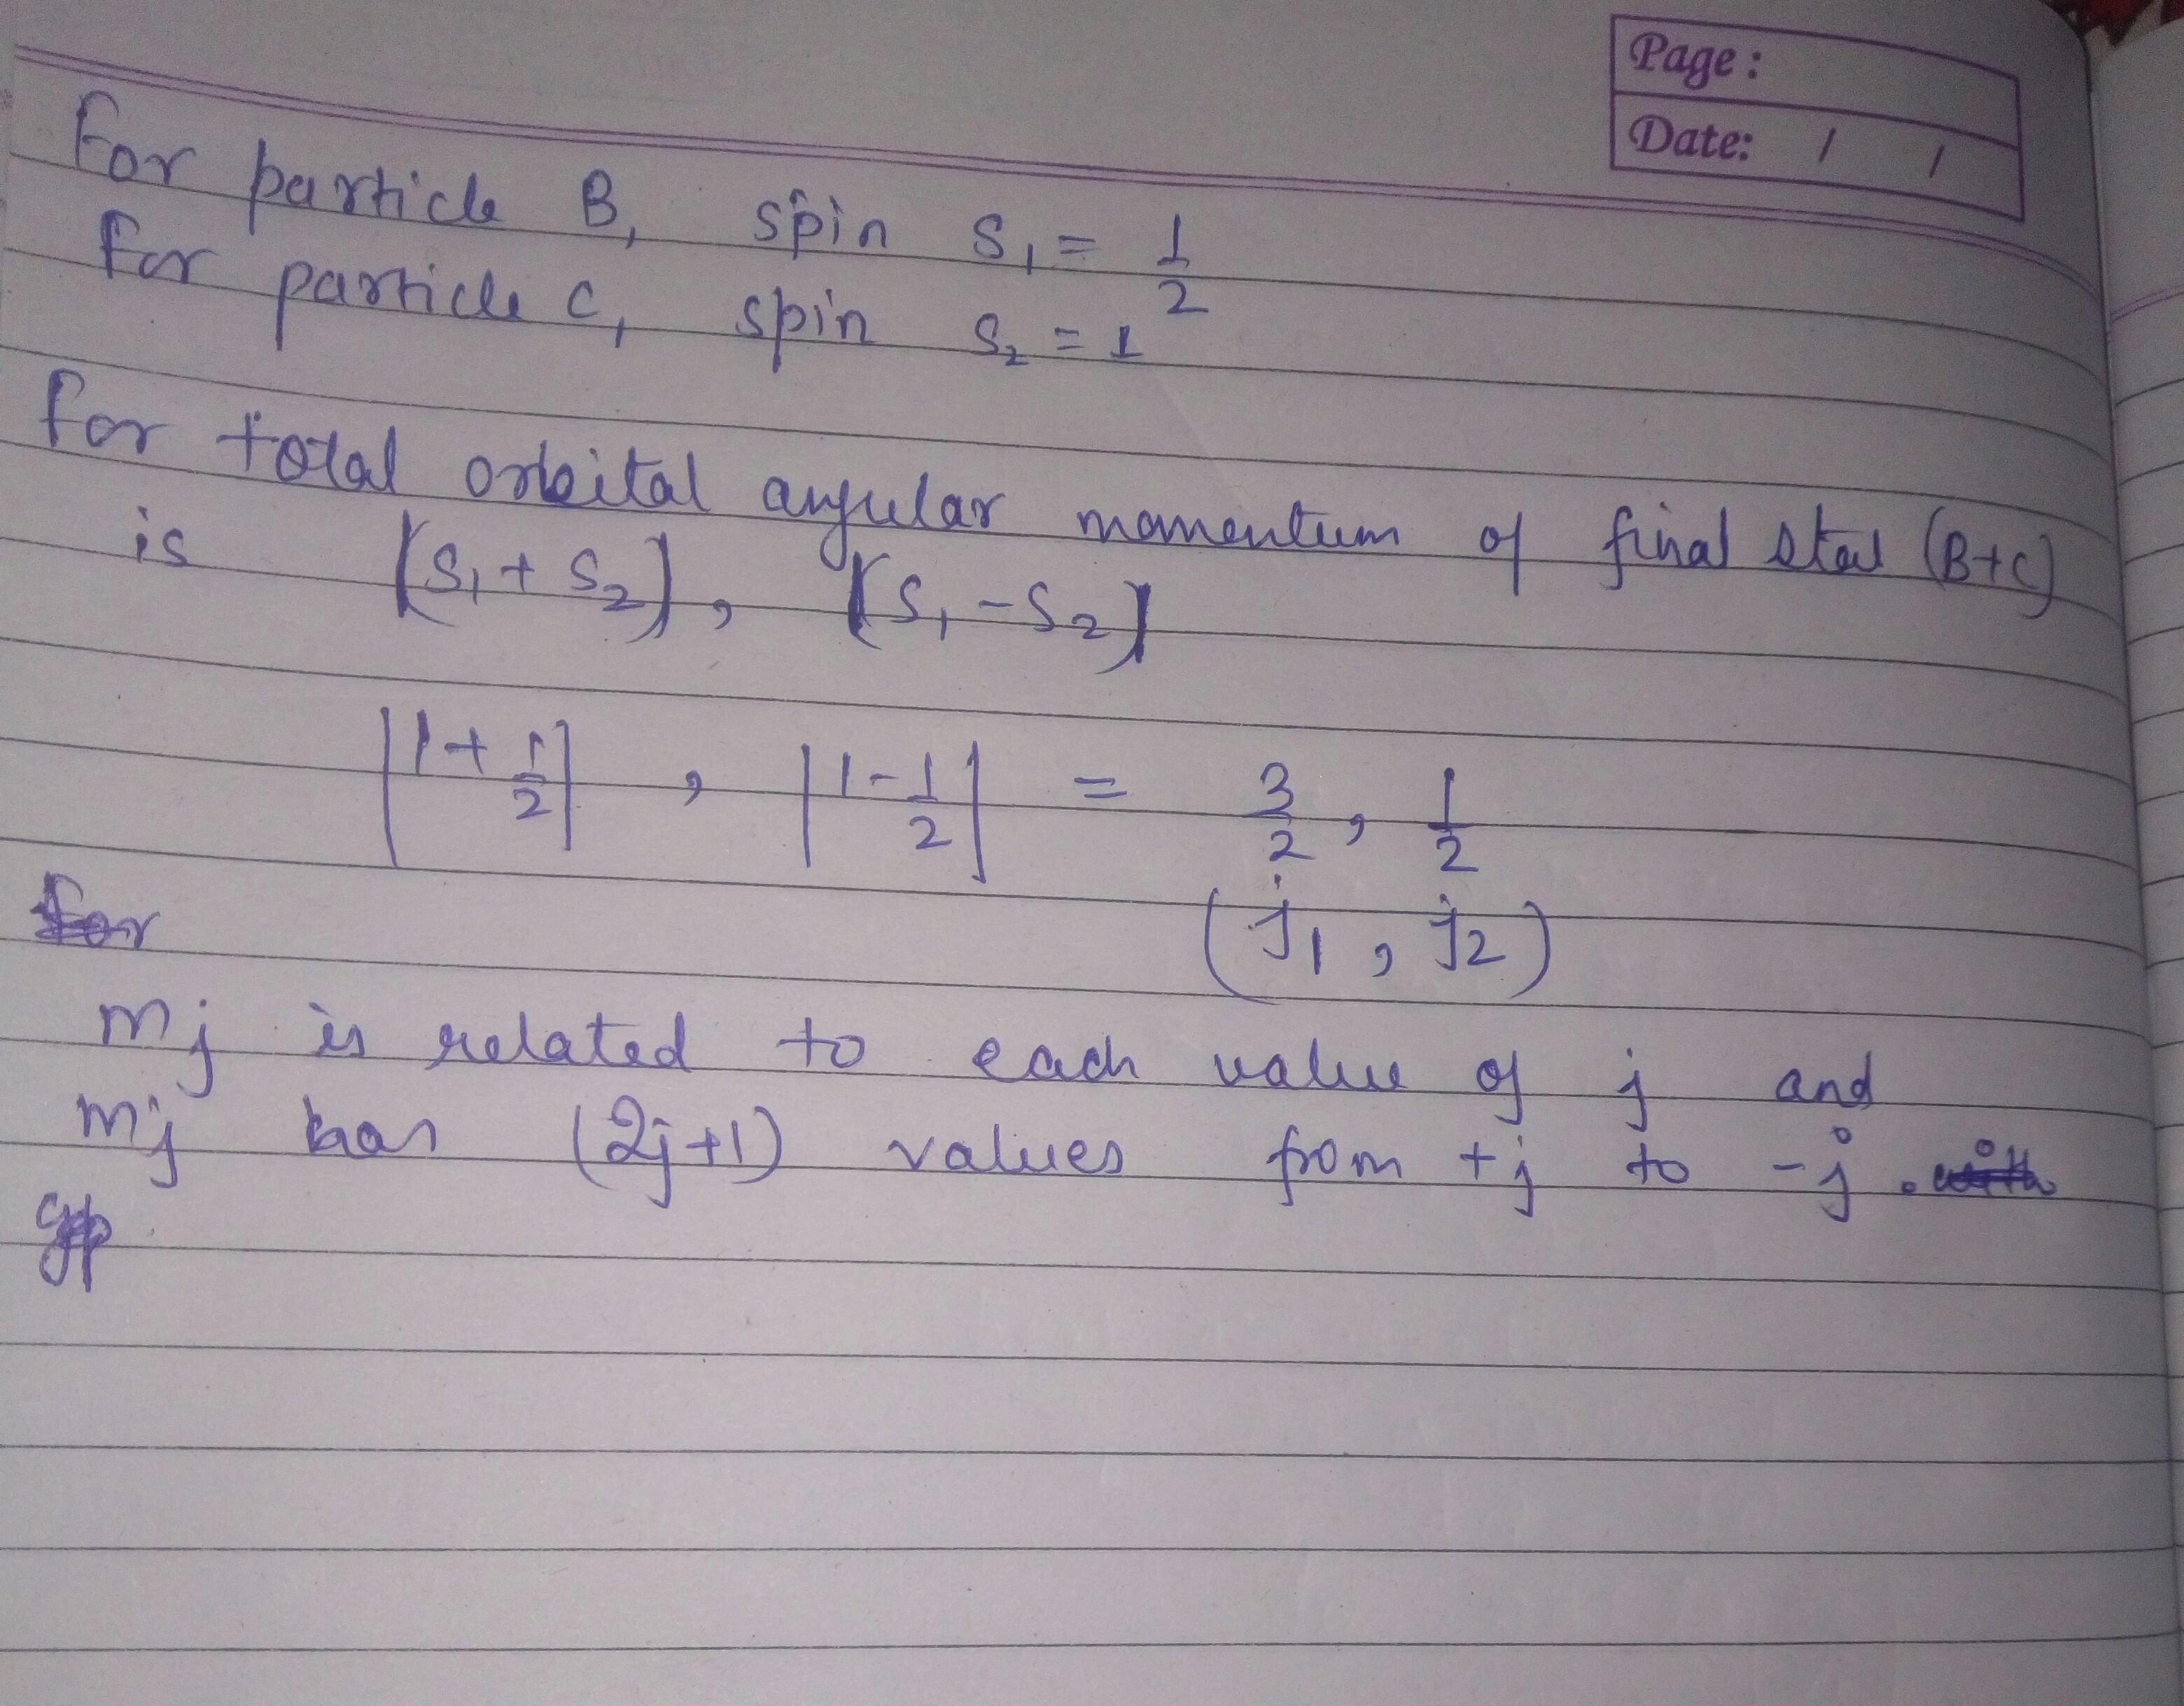 Page:
Date: / /
For particle B, spin S₁ = 1/2
For particle C, spin S₂ = 1
For total orbital angular momentum of final stat (B+C)
is |S₁ + S₂|, |S₁ - S₂|
|1 + 1/2|, |1 - 1/2| = 3/2, 1/2
(j₁, j₂)
mj is related to each value of j and
mj has (2j+1) values from +j to -j.